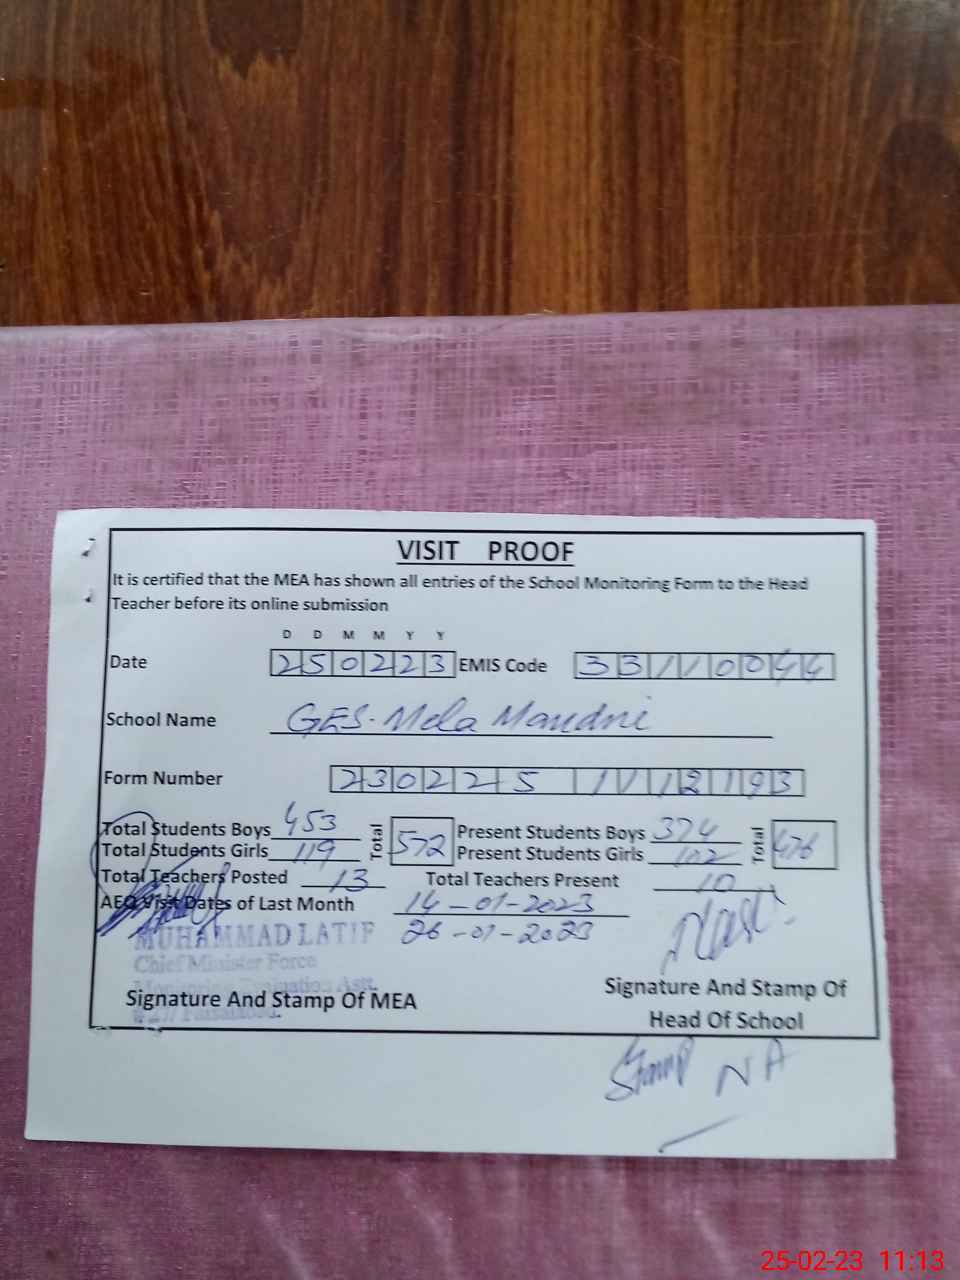 VISIT PROOF
It is certified that the MEA has shown all entries of the School Monitoring Form to the Head
Teacher before its online submission
D D M M Y Y
Date 250223 EMIS Code 33110044
School Name GES. Mela Mandni
Form Number 230225 1112193
Total Students Boys 453 Total 572 Present Students Boys 374 Total 476
Total Students Girls 119 Present Students Girls 102
Total Teachers Posted 13 Total Teachers Present 10
AEO Visit Dates of Last Month 14-01-2023
26-01-2023
MUHAMMAD LATIF
Chief Minister Force
Monitoring Evaluation Astt.
Faisalabad.
Signature And Stamp Of MEA
Signature And Stamp Of
Head Of School
Stamp NA
25-02-23 11:13